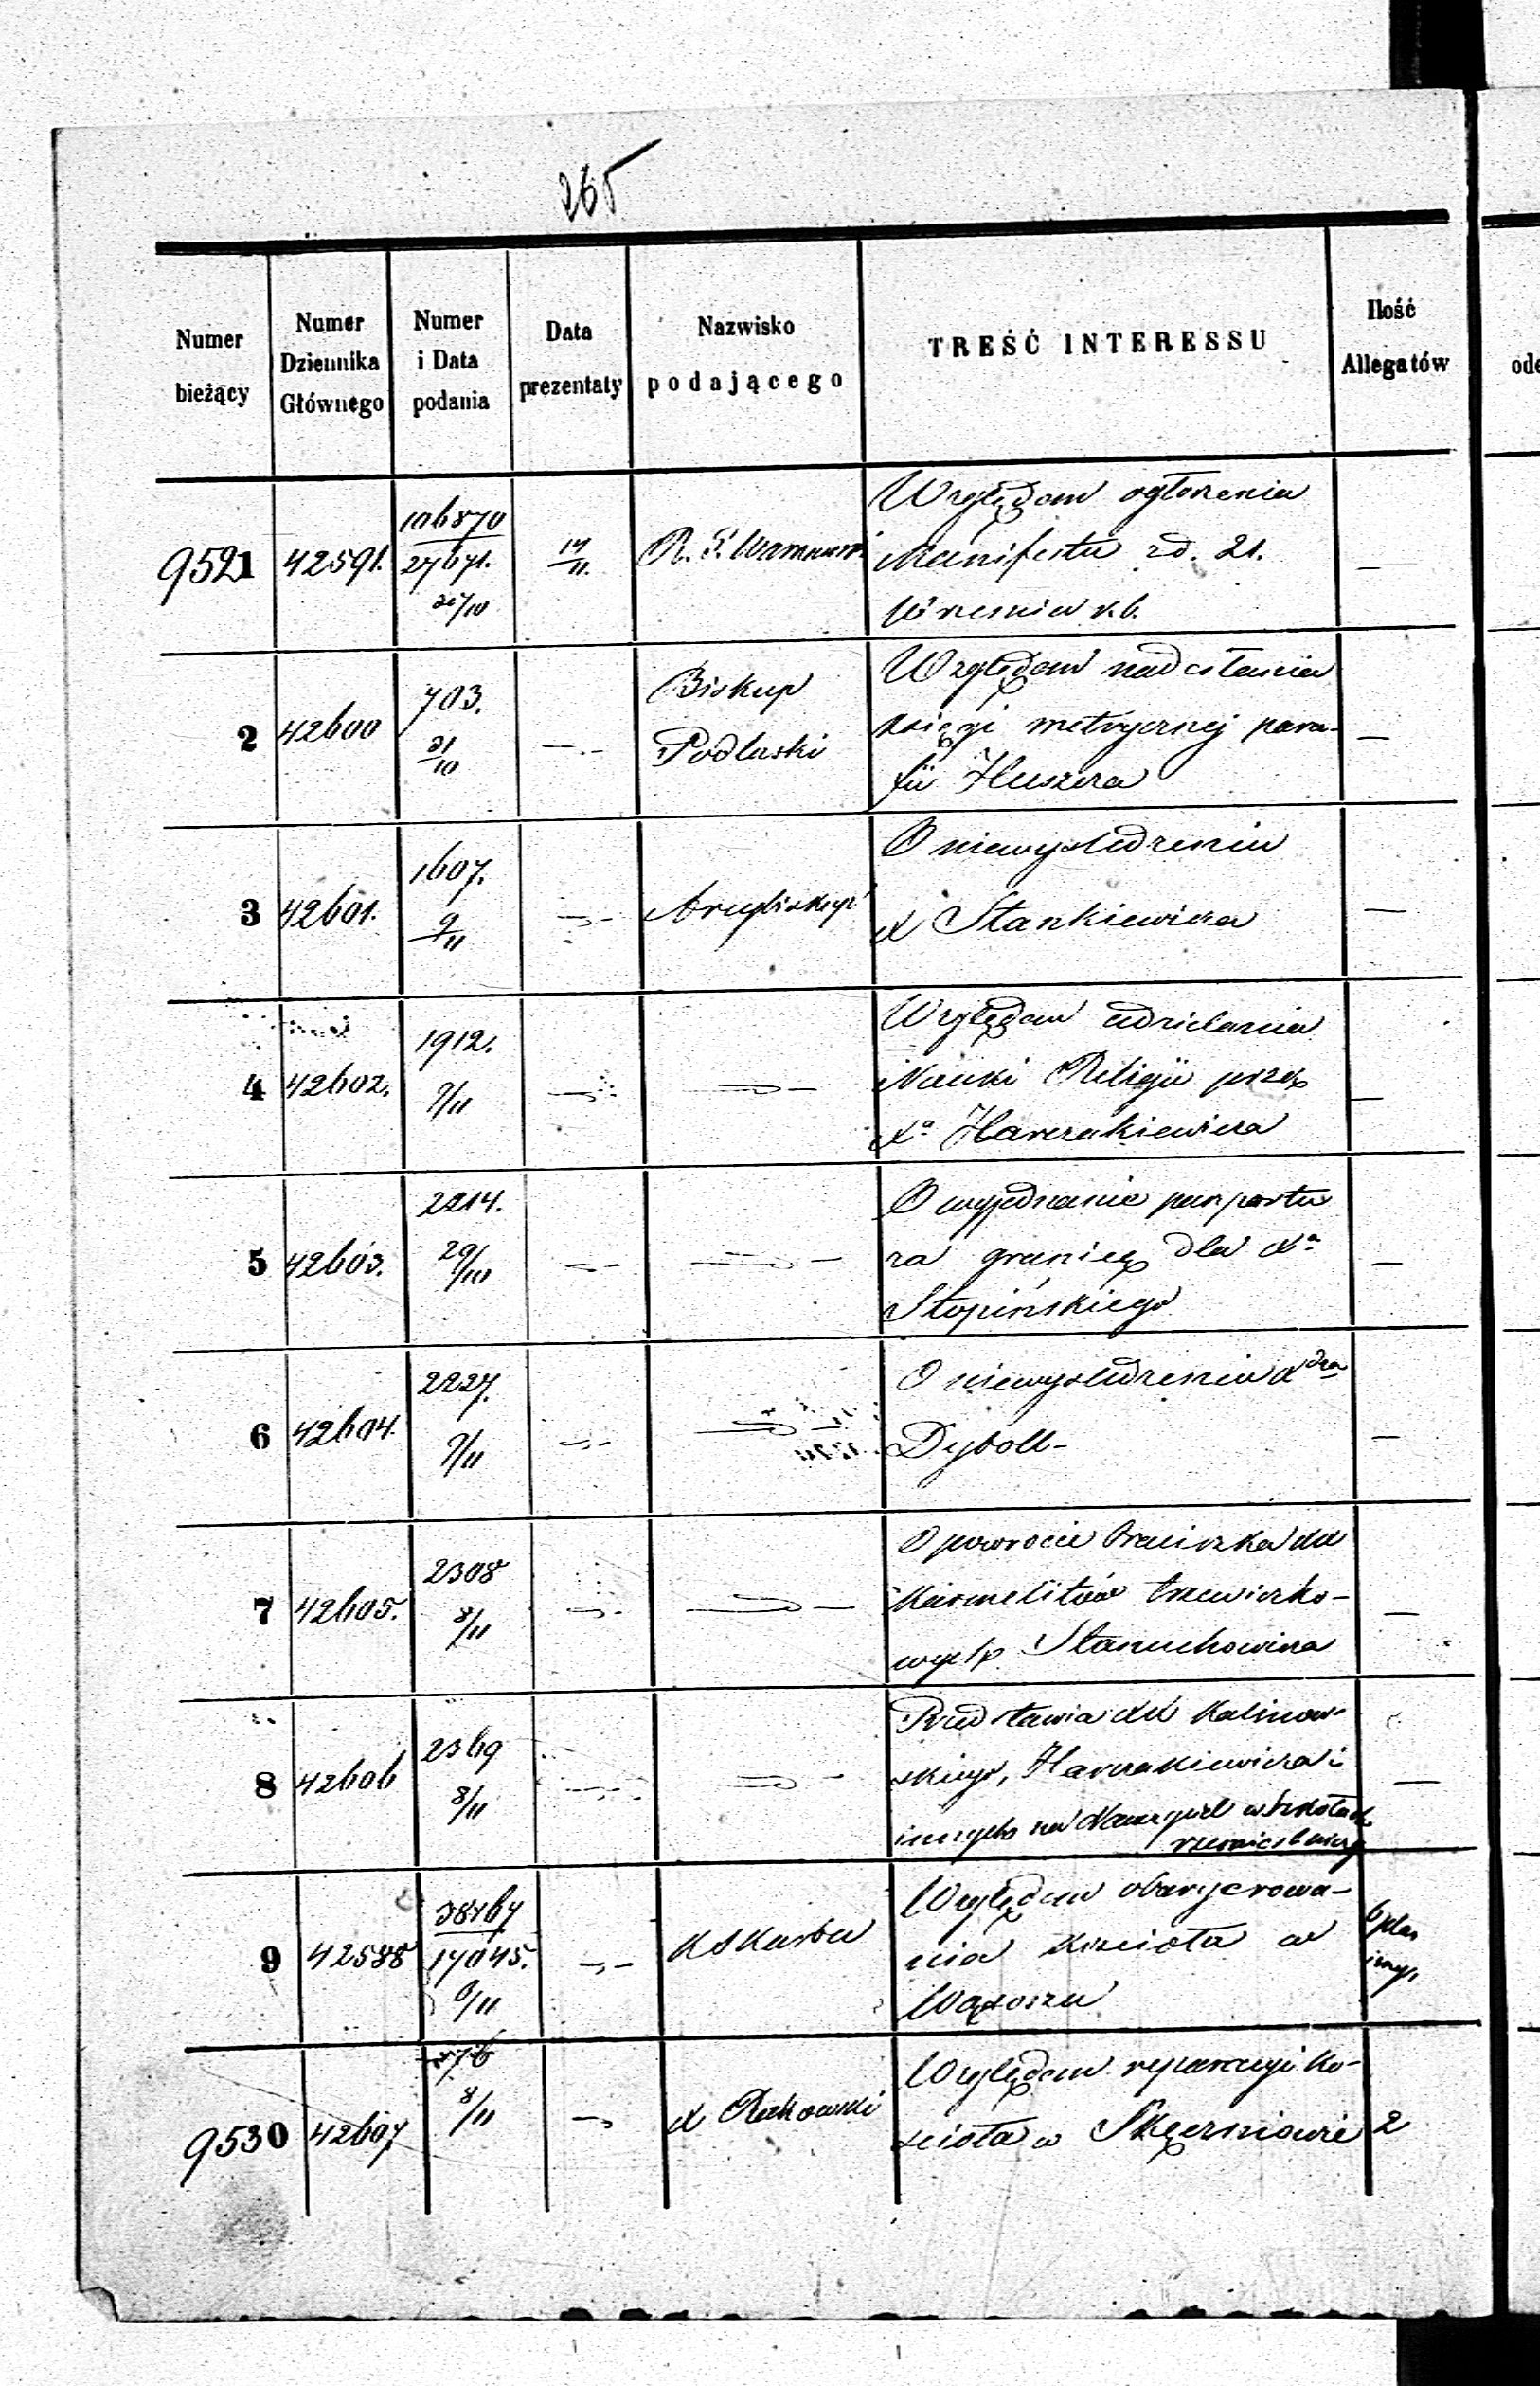 265
Numer bieżący
Numer Dziennika Głównego
Numer i Data podania
Data prezentaty
Nazwisko podającego
TREŚĆ INTERESSU
Ilość Allegatów
9521 42591. 106870 / 27671. 14/11. R. G. Warszaws. Względem ogłoszenia
Manifestu z d. 21.
Września r. b. —
2 42600 703. 31/10 —„— Biskup Podlaski Względem nadesłania
księgi metrycznej para-
fii Huszcza —
3 42601. 1607. 9/11 —„— Arcybiskup O niewyśledzeniu
X Stankiewicza —
4 42602. 1912. 9/11 —„— Względem udzielania
Nauki Religii przez
Xa Harczakiewicza —
5 42603. 2214. 29/10 —„— O wyjednanie paszportu
za granicę dla Xa
Stopińskiego —
6 42604. 2227. 9/11 —„— O niewyśledzeniu Xdza
Dyboll- —
7 42605. 2308 8/11 —„— O powrocie braciszka XX
Karmelitów trzewiczko-
wych Stanuchowicza —
8 42606 2369 8/11 —„— Przedstawia XX Kalinow-
skiego, Harczakiewicza i
innych na Nauczycieli w Szkołach
rzemieślniczych —
9 42588 38767 / 17045. 9/11 —„— K S Karbu Względem
nia kościoła w
Wąsoszu
9530 42607 576 8/11 —„ X Rutkowski Względem reparacyi ko-
ścioła w Skęczniewie 2
ode